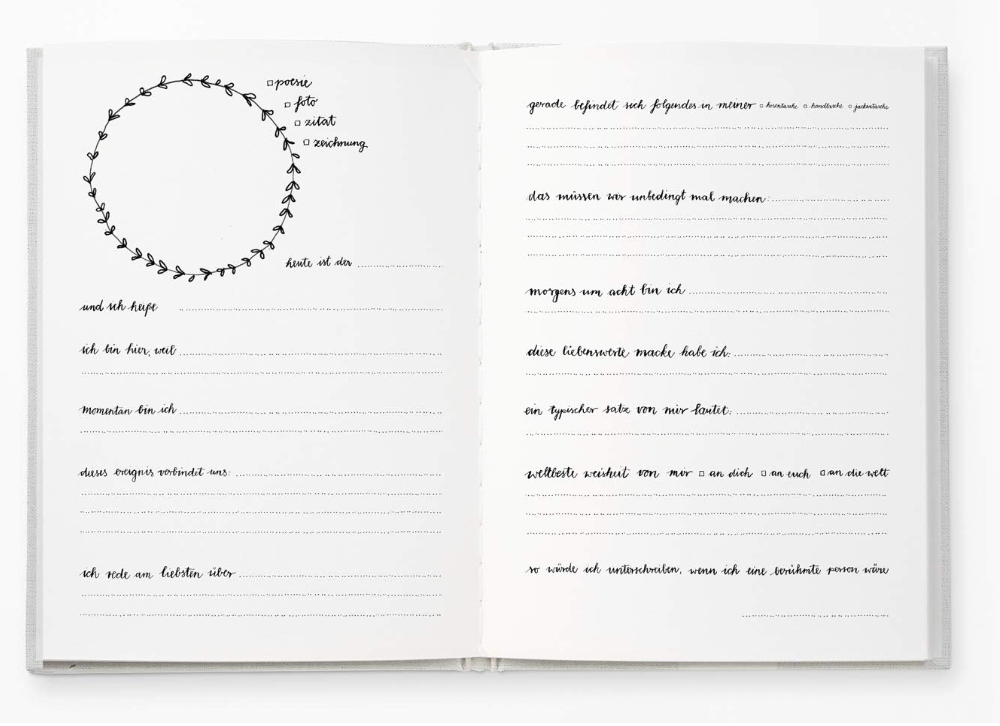 poesie
foto
zitat
zeichnung
heute ist der
und ich heiße
ich bin hier, weil
momentan bin ich
dieses ereignis verbindet uns:
ich rede am liebsten über
gerade befindet sich folgendes in meiner hosentasche handtasche jackentasche
das müssen wir unbedingt mal machen:
morgens um acht bin ich
diese liebenswerte macke habe ich:
ein typischer satz von mir lautet:
weltbeste weisheit von mir an dich an euch an die welt
so würde ich unterschreiben, wenn ich eine berühmte person wäre